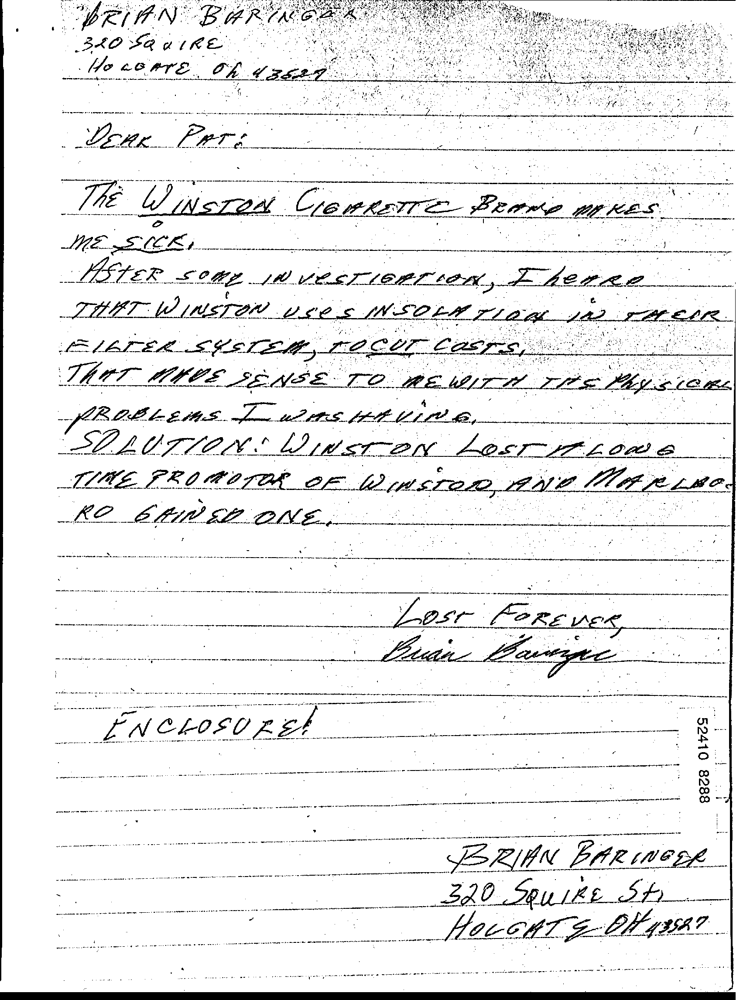 BRIAN BARINGER
320 SQUIRE
HOLGATE Oh 43527
DEAR PAT:
The WINSTON CIGARETTE BRAND MAKES
ME SICK.
AFTER SOME INVESTIGATION, I heARD
THAT WINSTON USES INSOLATION IN THEIR
FILTER SYSTEM, TO CUT COSTS.
THAT MADE SENSE TO ME WITH THE PhySICAL
PROBLEMS I WAS HAVING.
SOLUTION: WINSTON LOST A LONG
TIME PROMOTOR OF WINSTON, AND MARLBO-
RO GAINED ONE.
LOST FOREVER,
Brian Baringer
ENCLOSURE!
52410 8288
BRIAN BARINGER
320 SQUIRE St.
HOLGATE OH 43527